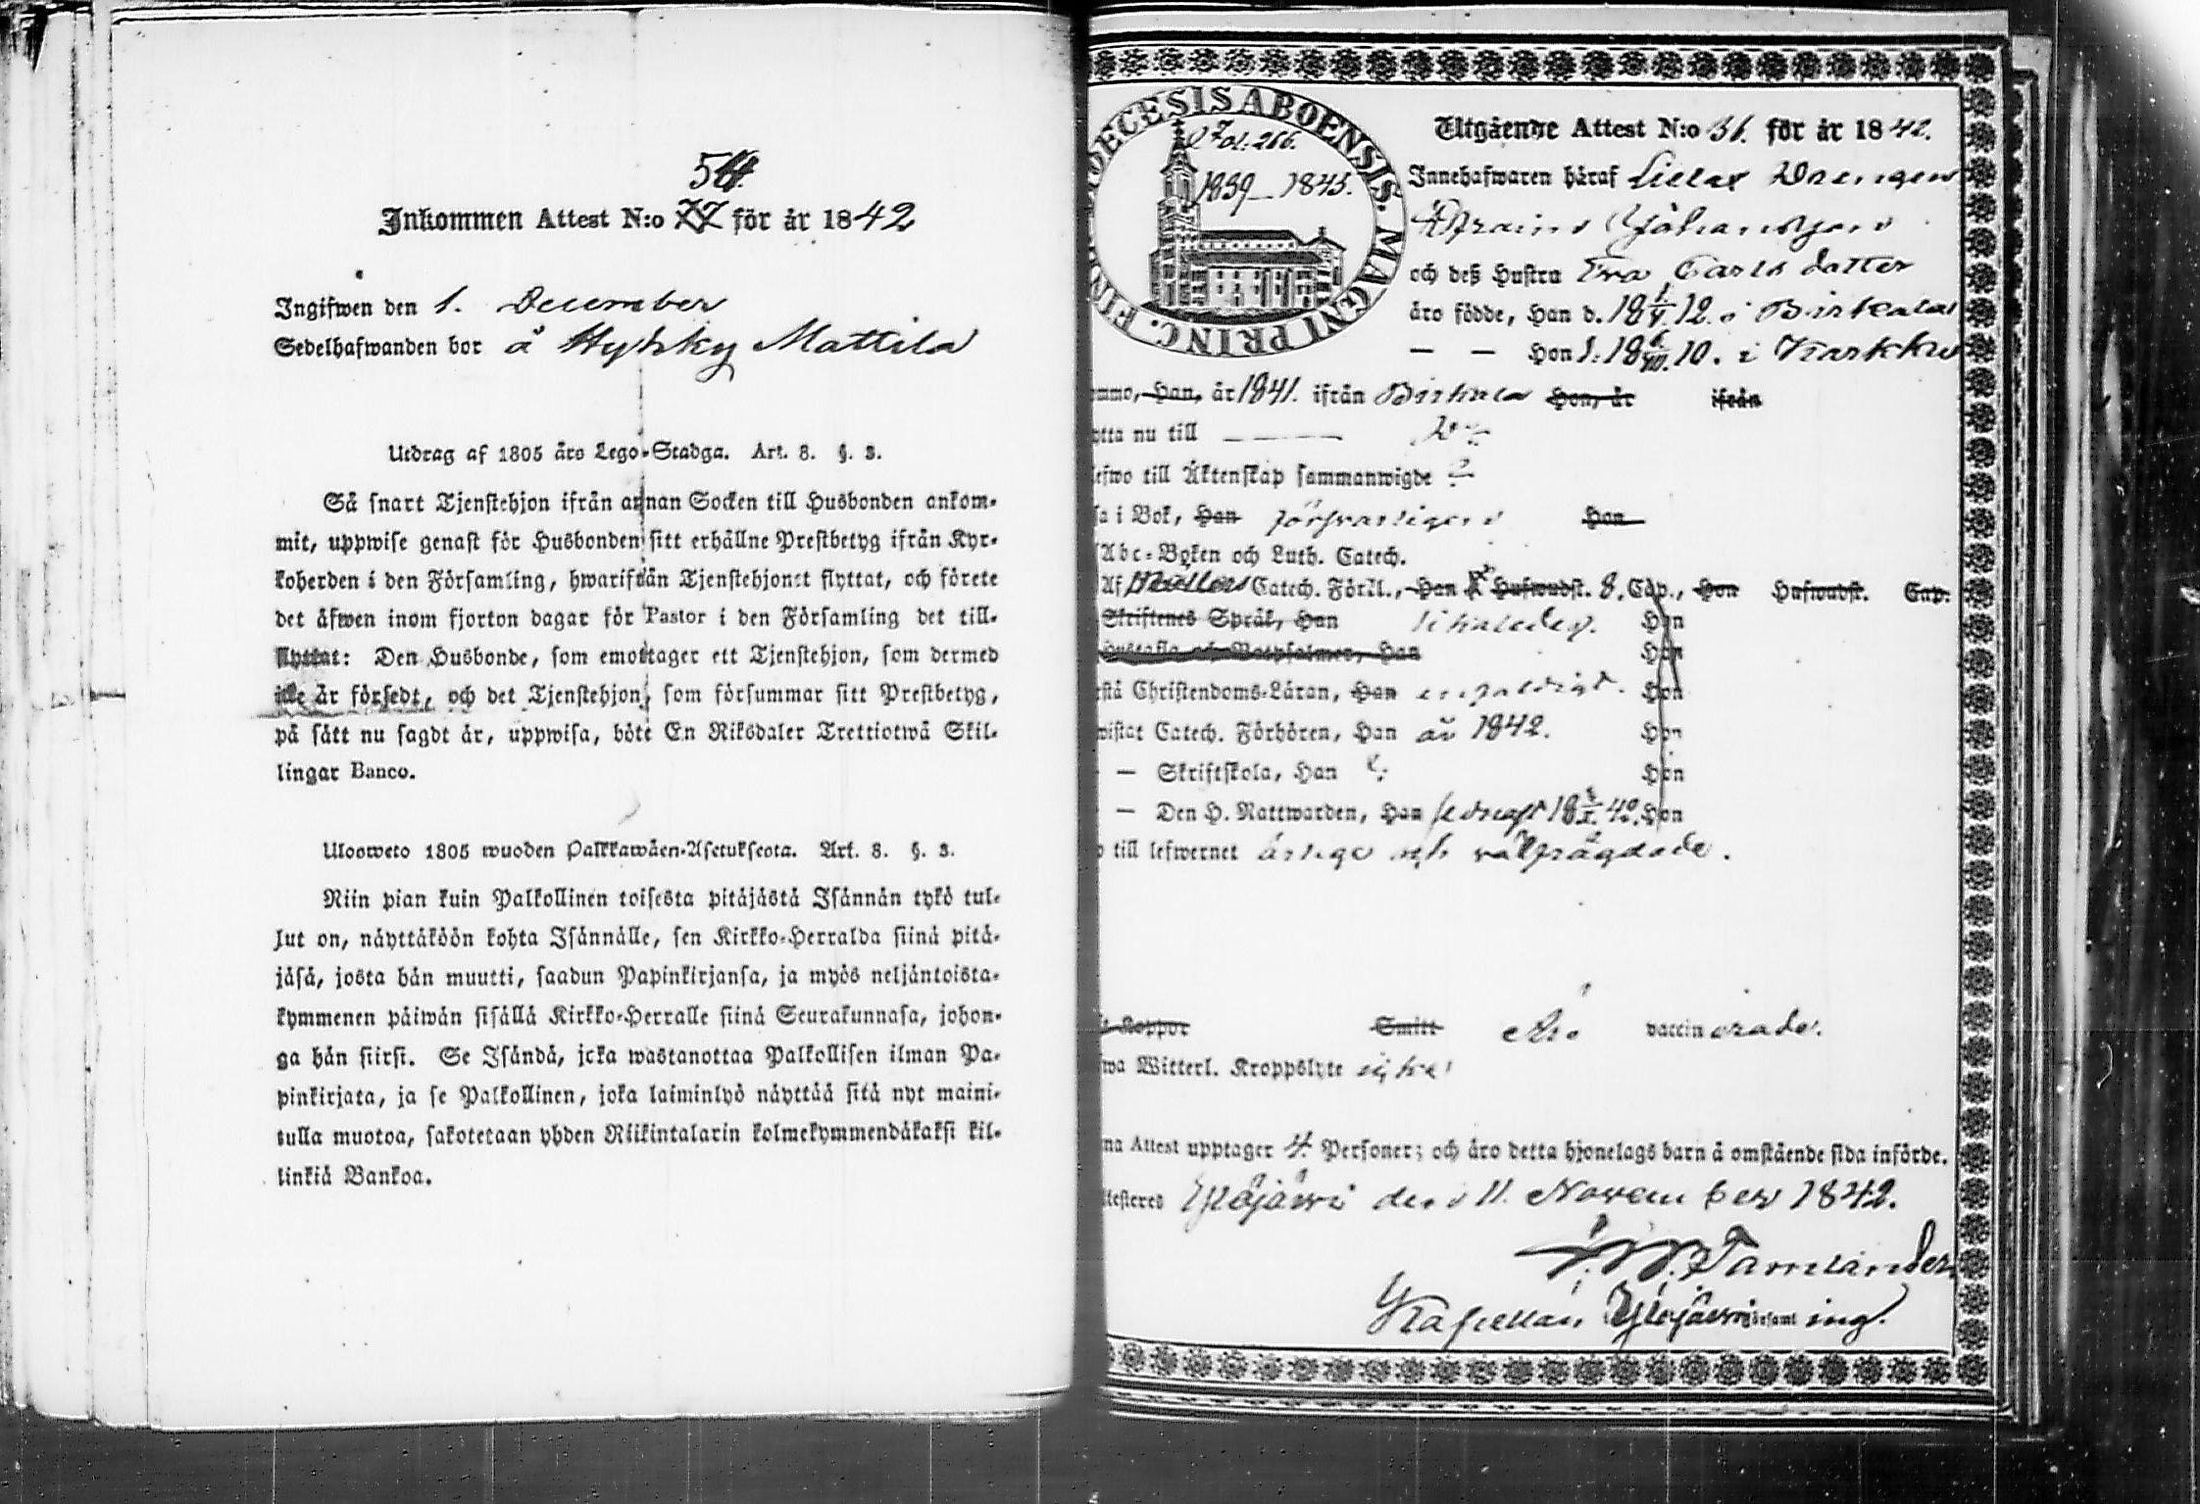 54.
Inkommen Attest N:o för år 1842
Ingifwen den 1. December
Sedelhafwanden bor å Hyhky Mattila
Utdrag af 1805 års Lego-Stadga. Art. 8. §. 3.
Så snart Tjenstehjon ifrån annan Socken till Husbonden ankom-
mit, uppwise genast för Husbonden sitt erhållne Prestbetyg ifrån Kyr-
koherden i den Församling, hwarifrån Tjenstehjonet flyttat, och förete
det äfwen inom fjorton dagar för Pastor i den Församling det till-
flyttat: Den Husbonde, som emottager ett Tjenstehjon, som dermed
icke är försedt, och det Tjenstehjon, som försummar sitt Prestbetyg,
på sätt nu sagdt är, uppwisa, böte En Riksdaler Trettiotwå Skil-
lingar Banco.
Ulosweto 1805 wuoden Palkkawäen-Asetuksesta. Art. 8. §. 3.
Niin pian kuin Palkollinen toisesta pitäjästä Isännän tykö tul-
lut on, näyttäköön kohta Isännälle, sen Kirkko-Herralda siinä pitä-
jäsä, josta hän muutti, saadun Papinkirjansa, ja myös neljäntoista-
kymmenen päiwän sisällä Kirkko-Herralle siinä Seurakunnasa, johon-
ga hän siirsi. Se Isändä, joka wastanottaa Palkollisen ilman Pa-
pinkirjata, ja se Palkollinen, joka laiminlyö näyttää sitä nyt maini-
tulla muotoa, sakotetaan yhden Riikintalarin kolmekymmendäkaksi kil-
linkiä Bankoa.
DECESIS ABOENSIS. MAGNI PRINC. FIN
Fol. 266.
1839–1845.
Utgående Attest N:o 31. för år 1842.
Innehafwaren häraf Drengen
Efraim Johansson
och deß Hustru Eva Carls dotter
äro födde, Han d. 18 12. i Birkala
— — Hon d. 18 10. i Karkku
ommo, Han, år 1841. ifrån Birkala Hon, år ifrån
ytta nu till
lefwo till Äktenskap sammanwigde
sa i Bok, Han förswarligen Han
Abc-Boken och Luth. Catech.
Af Catech. Förkl., Han Hufwudst. 8. Cap., Hon Hufwudst. Cap.
Skriftenes Språk, Han likaledes. Hon
Hustafla och Botpsalmer, Han Hon
rstå Christendoms-Läran, Han enfaldigt. Hon
wistat Catech. Förhören, Han år 1842. Hon
— Skriftskola, Han Hon
— Den H. Nattwarden, Han sednast 18 42. Hon
o till lefwernet ärlige och wälfrägdade.
t Koppor Smitt Äro vaccinerade.
wa Witterl. Kroppslyte
na Attest upptager 4. Personer; och äro detta hjonelags barn å omstående sida införde.
testeres Ylöjärvi den 11. November 1842.
Tamlander
Kapellan Ylöjärvi